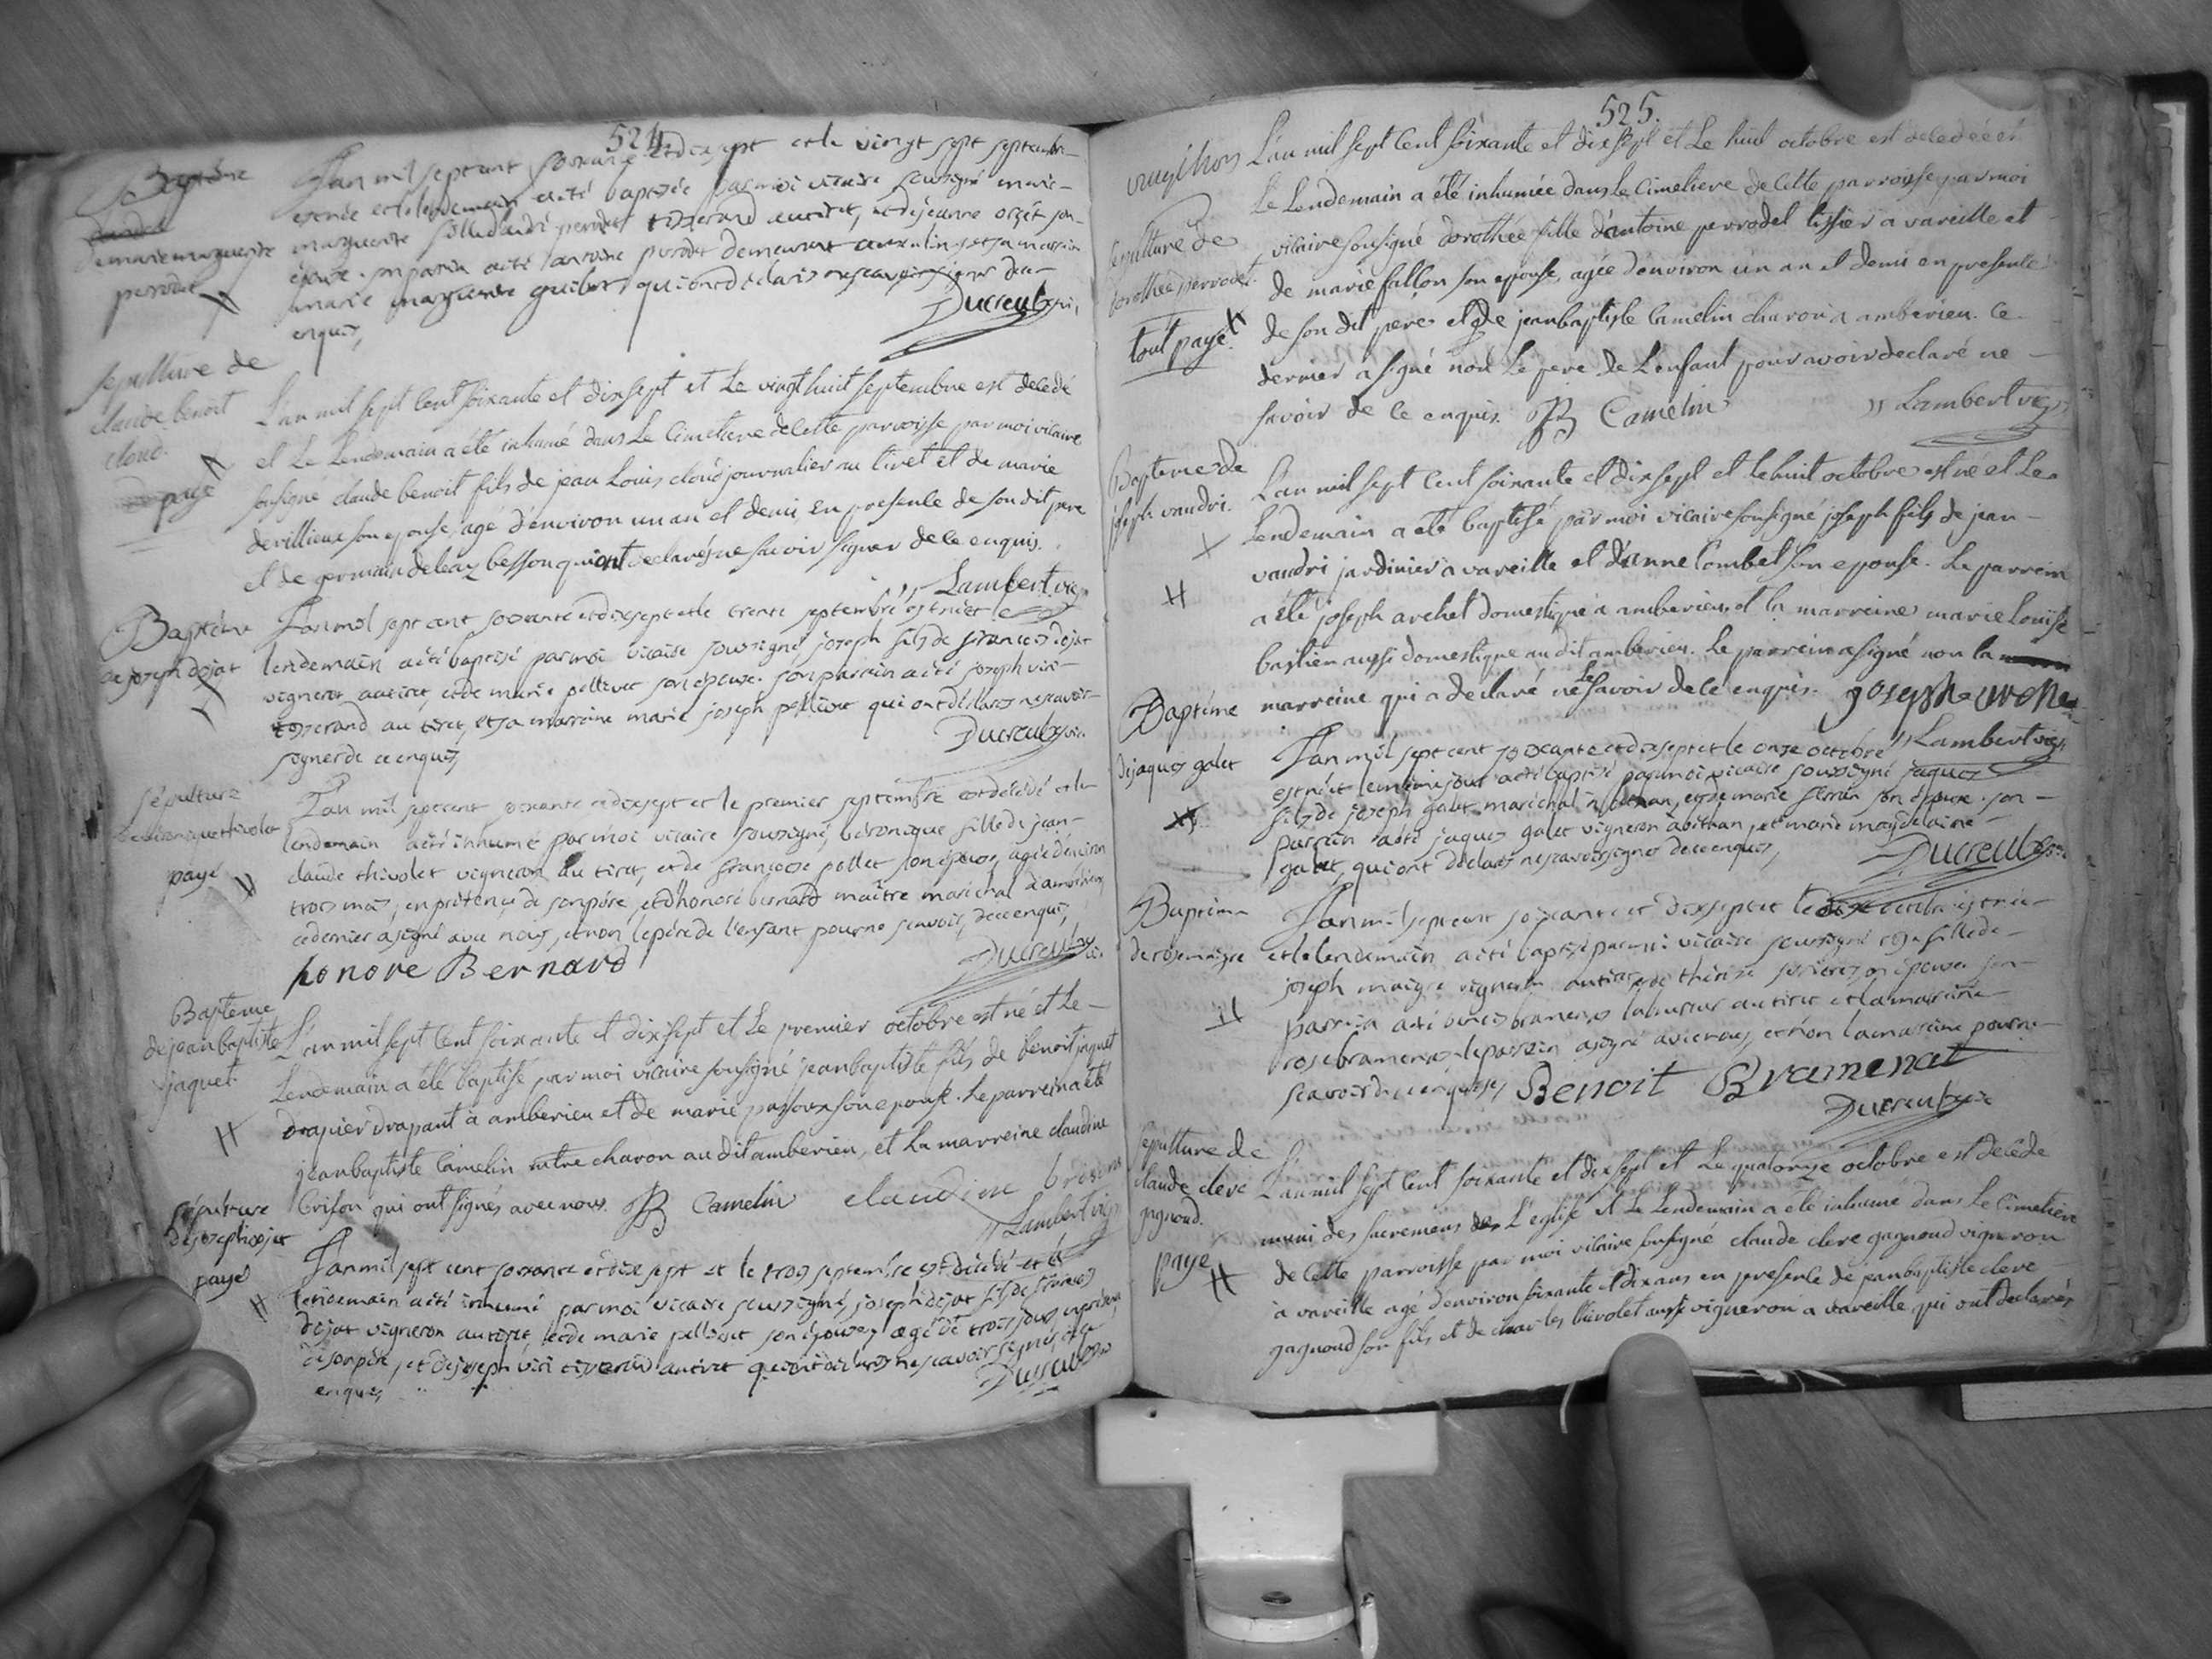 524
Baptême
de marie marguerite
perrodet
L'an mil sept cent soixante et dix sept et le vingt sept septembre
et le lendemain a été baptisée par moi vicaire soussigné marie
marguerite fille d'andré perrodet tisserand au tiret, et de jeanne
épouse. son parrin a été antoine perrodet demeurant et sa marrine
marie marguerite guibert, qui ont déclarés ne scavoir signer de ce
enquis,
Ducreux vic,
sepulture de
claude benoit
cloud.
payé
L'an mil sept cent soixante et dix sept et Le vingt huit septembre est decedé
et Le Lendemain a été inhumé dans Le Cimetiere de cette parroisse par moi vicaire
sousigné claude benoit fils de jean Louis cloud journalier au tiret et de marie
devillieux son epouse, agé d'environ un an et demi, en presence de son dit pere
et de germain deleaz besson qui ont declarés ne savoir signer de ce enquis.
Lambert vic,
Baptéme
de joseph dojat
L'an mil sept cent soixante et dixsept et le trente septembre est né et le
lendemain a été baptisé par moi vicaire soussigné, joseph fils de francois dojat
vigneron au tiret, et de marie pellivet son épouse. son parrain a été joseph viri
tisserand au tiret, et sa marraine marie joseph pellivet qui ont déclarés ne scavoir
signer de ce enquis,
Ducreux vic.
sépulture
de véronique thivolet
payé
L'an mil sept cent soixante et dixsept et le premier septembre est décédé et le
lendemain a été inhumé par moi vicaire soussigné, véronique fille de jean
claude thivolet vigneron au tiret, et de francoise pollet son épouse, agée d'environ
trois mois, en présence de son père, et d'honoré bernard maître maréchal d'amberieu,
ce dernier a signé avec nous, et non le pére de l'enfant pour ne scavoir, de ce enquis,
honore Bernard
Ducreux vic.
Bapteme
de jean baptiste
jaquet.
L'an mil sept cent soixante et dix sept et Le premier octobre est né et Le
Lendemain a été baptisé par moi vicaire sousigné jean baptiste fils de benoit jaquet
drapier drapant à amberieu et de marie son epouse. Le parrein a été
jean baptiste Camelin mtre charon au dit amberieu, et La marreine claudine
Brison qui ont signés avec nous. JB Camelin claudine brison
Lambert vic,
sépulture
de joseph dojat
payé
L'an mil sept cent soixante et dix sept et le trois septembre est décédé et le
lendemain a été inhumé par moi vicaire soussigné, joseph dojat fils de francois
dojat vigneron au tiret, et de marie pellivet son épouse, agé de trois jours en présence
de son père, et de joseph viri tisserand au tiret qui ont déclarés ne scavoir signer de ce
enquis,
Ducreux vic
525.
L'an mil sept Cent soixante et dix sept et Le huit octobre est decedée et
Le Lendemain a été inhumée dans Le Cimetiere de Cette parroisse par moi
sepulture de
dorothée perrodet
tout payé
vicaire sousigné dorothée fille d'antoine perrodet tissier a vareille et
de marie fallon son epouse, agée d'environ un an et demi en presence
de son dit pere et de jean baptiste Camelin charon a amberieu. Ce
dernier a signé non Le pere de L'enfant pour avoir declaré ne
savoir de ce enquis. JB Camelin
Lambert vic,
Bapteme de
joseph vaudri.
L'an mil sept Cent soixante et dix sept et le huit octobre est né et Le
Lendemain a été baptisé par moi vicaire sousigné joseph fils de jean
vaudri jardinier a vareille et d'anne Combet son epouse. Le parrein
a été joseph archet domestique a amberieu, et la marreine marie Louise
bastien aussi domestique au dit amberieu. Le parrein a signé non la
marreine qui a declaré ne Le savoir de ce enquis.
Lambert vic,
Baptéme
de jaques galet
L'an mil sept cent soixante et dixsept et le onze octobre
est né et le même jour a été baptisé par moi vicaire soussigné jaques
fils de joseph galet maréchal a bettan, et de marie ferran son épouse. son
parrain a été jaques galet vigneron à bettan, et marie magdelaine
galet, qui ont déclarés ne scavoir signer de ce enquis,
Ducreux vic
Baptéme
de rose maigre
L'an mil sept cent soixante et dixsept et le octobre est née
et le lendemain a été baptisée par moi vicaire soussigné rose fille de
joseph maigre vigneron au tiret, et de thérése son épouse. son
parrain a été benoit bramenat laboureur au tiret et la marraine
rose bramenat, le parrain a signé avec nous, et non la marraine pour ne
scavoir de ce enquises, Benoit Bramenat
Ducreux vic
sepulture de
claude clerc
gagnoud.
payé
L'an mil sept Cent soixante et dix sept et Le quatorze octobre est decedé
muni des sacremens de L'eglise et Le Lendemain a été inhumé dans Le Cimetiere
de Cette parroisse par moi vicaire sousigné claude clerc gagnoud vigneron
à vareille agé d'environ soixante et dix ans en presence de jean baptiste clerc
gagnoud son fils et de charles thivolet aussi vigneron a vareille qui ont declarés